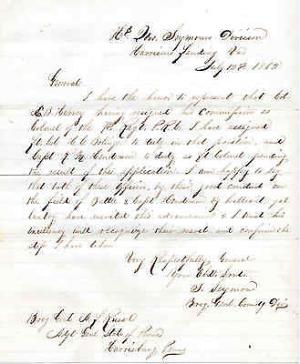 Hd Qrs. Seymours Division
Harrisons Landing Va
July 12th 1862
General
I have the honor to represent that Col
E B Harvey having resigned his commission as
Colonel of the 7th Regt P.R.V.C. I have assigned
Lt Col H C Bolinger to duty in that position, and
Capt R M Henderson to duty as Lt Colonel pending
the result of this application. I am happy to say
that both of these officers, by their good conduct on
the field of Battle & Capt Henderson by brilliant gal
lantry have merited this advancement & I trust his
excellency will recognize their merit and confirm the
steps I have taken
Very Respectfully General
Your Obdt Servt
T. Seymour
Brig Genl Comdg Div
Brig Genl A L Russell
Adjt Genl State of Penna
Harrisburg Penna